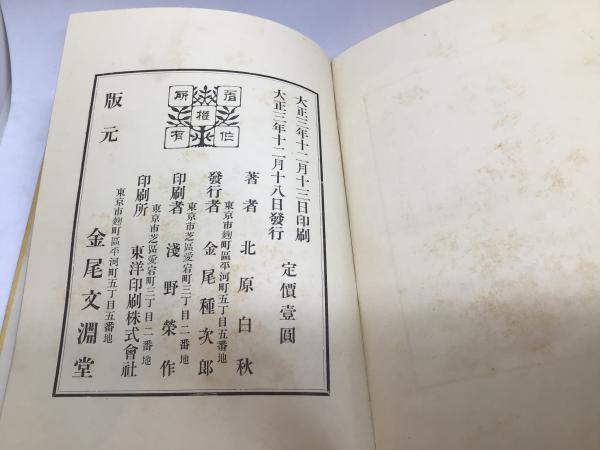 大正三年十二月十三日印刷
大正三年十二月十八日發行
定價壹圓
著作權所有
著者 北原白秋
東京市麹町區平河町五丁目五番地
發行者 金尾種次郎
東京市芝區愛宕町三丁目二番地
印刷者 淺野榮作
東京市芝區愛宕町三丁目二番地
印刷所 東洋印刷株式會社
東京市麹町區平河町五丁目五番地
版元 金尾文淵堂